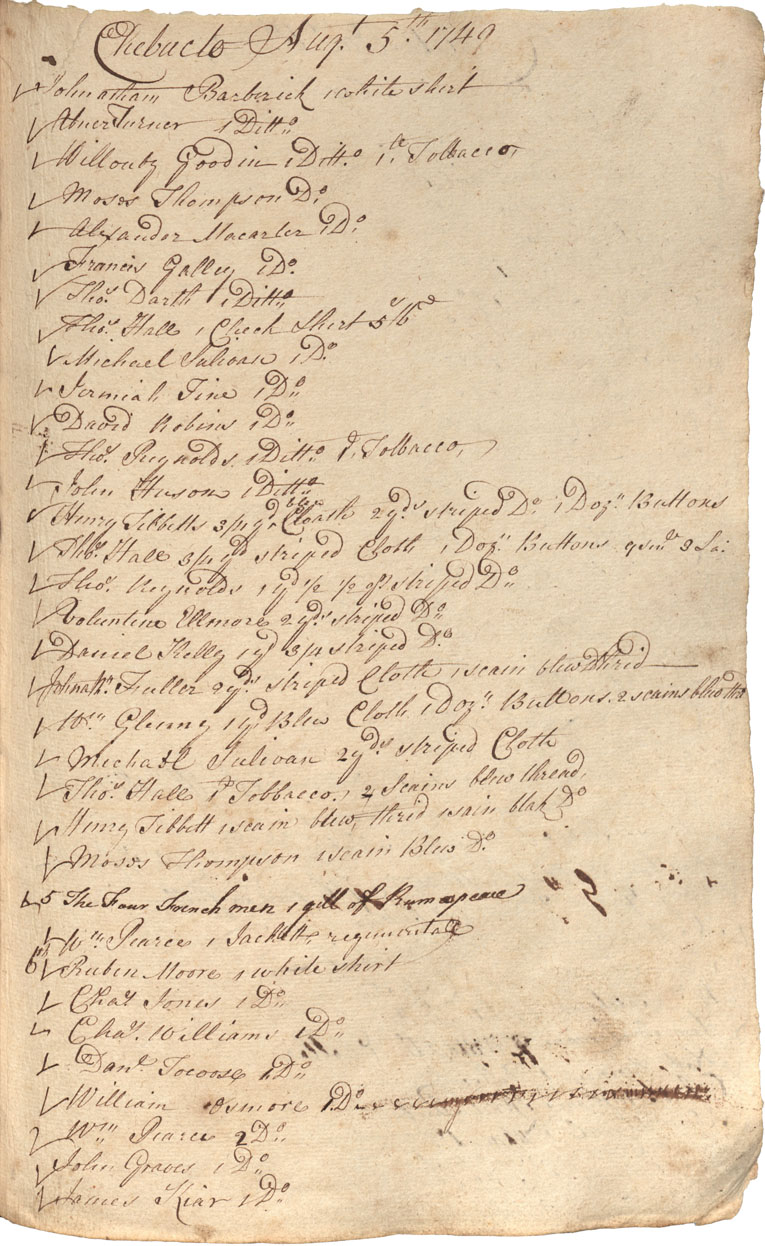 Chebucto Augt 5th 1749
Johnatham Barberick 1 white shirt
Abner Turner 1 Ditto
Willouby Goodin 1 Ditto 1 lb Tolbacco,
Moses Thompson Do
Alexander Macarter 1 Do
Francis Galley 1 Do
Thos Darth 1 Ditto
Thos Hall 1 Check Shirt
Michael Sulivan 1 Do
Jermiah Fine 1 Do
David Robins 1 Do
Thos Reynolds 1 Ditto Tolbacco,
John Huson 1 Ditto
Henry Tibbetts 3/4 yd blew Cloath 2 yds striped Do 1 Dozn Buttons
Thos Hall 3/4 yd striped Cloth 1 Dozn Buttons
Thos Reynolds 1 yd 1/2 striped Do
Voluntine Ellmore 2 yds striped Do
Daniel Kelley 1 yd 3/4 striped Do
Johnatn Fuller 2 yds striped Cloth 1 scain blew thrid
Wm Glenney 1 yd Blew Cloth 1 Dozn Buttons 2 scains blew thr
Michael Sulivan 2 yds striped Cloth
Thos Hall Tobbacco, 2 scains blew thread,
Henry Tibbett 1 scain blew thrid 1 sain blak Do
Moses Thompson 1 scain Blew Do
5 The Four French men 1 gill of Rum apeace
Wm Pearce 1 Jackett regimentale
6th Ruben Moore 1 white shirt
Chas Jones 1 Do
Chas Williams 1 Do
Danl Tocoose 1 Do
William Osmore 1 Do
Wm Pearce 2 Do
John Graves 1 Do
James Kiar 1 Do